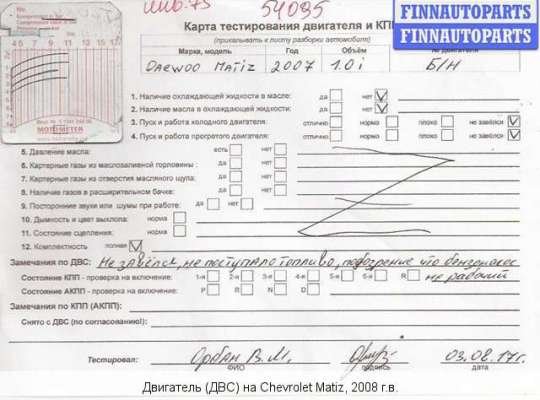 инв.75 54095
FINNAUTOPARTS
FINNAUTOPARTS
Карта тестирования двигателя и КПП
(прикалывать к листу разборки автомобиля)
Марка, модель Год Объём № двигателя
DAEWOO MATIZ 2007 1.0 i Б/Н
MOTOMETER
1. Наличие охлаждающей жидкости в масле: да нет
2. Наличие масла в охлаждающей жидкости: да нет
3. Пуск и работа холодного двигателя: отлично норма плохо не завёлся
4. Пуск и работа прогретого двигателя: отлично норма плохо не завёлся
5. Давление масла: есть нет
6. Картерные газы из маслозаливной горловины : да нет
7. Картерные газы из отверстия масляного щупа: да нет
8. Наличие газов в расширительном бачке: да нет
9. Посторонние звуки или шумы при работе: да нет
10. Дымность и цвет выхлопа: норма
11. Состояние сцепления: норма
12. Комплектность полная
Замечания по ДВС: Не завёлся, не поступало топливо, подозрение что бензонасос
не рабочий
Состояние КПП - проверка на включение: 1-я 2-я 3-я 4-я 5-я R
Состояние АКПП - проверка на включение: P R N D
Замечания по КПП (АКПП):
Снято с ДВС (по согласованию!):
Тестировал: Орбан В.М. 03.08.17г.
ФИО подпись дата
Двигатель (ДВС) на Chevrolet Matiz, 2008 г.в.